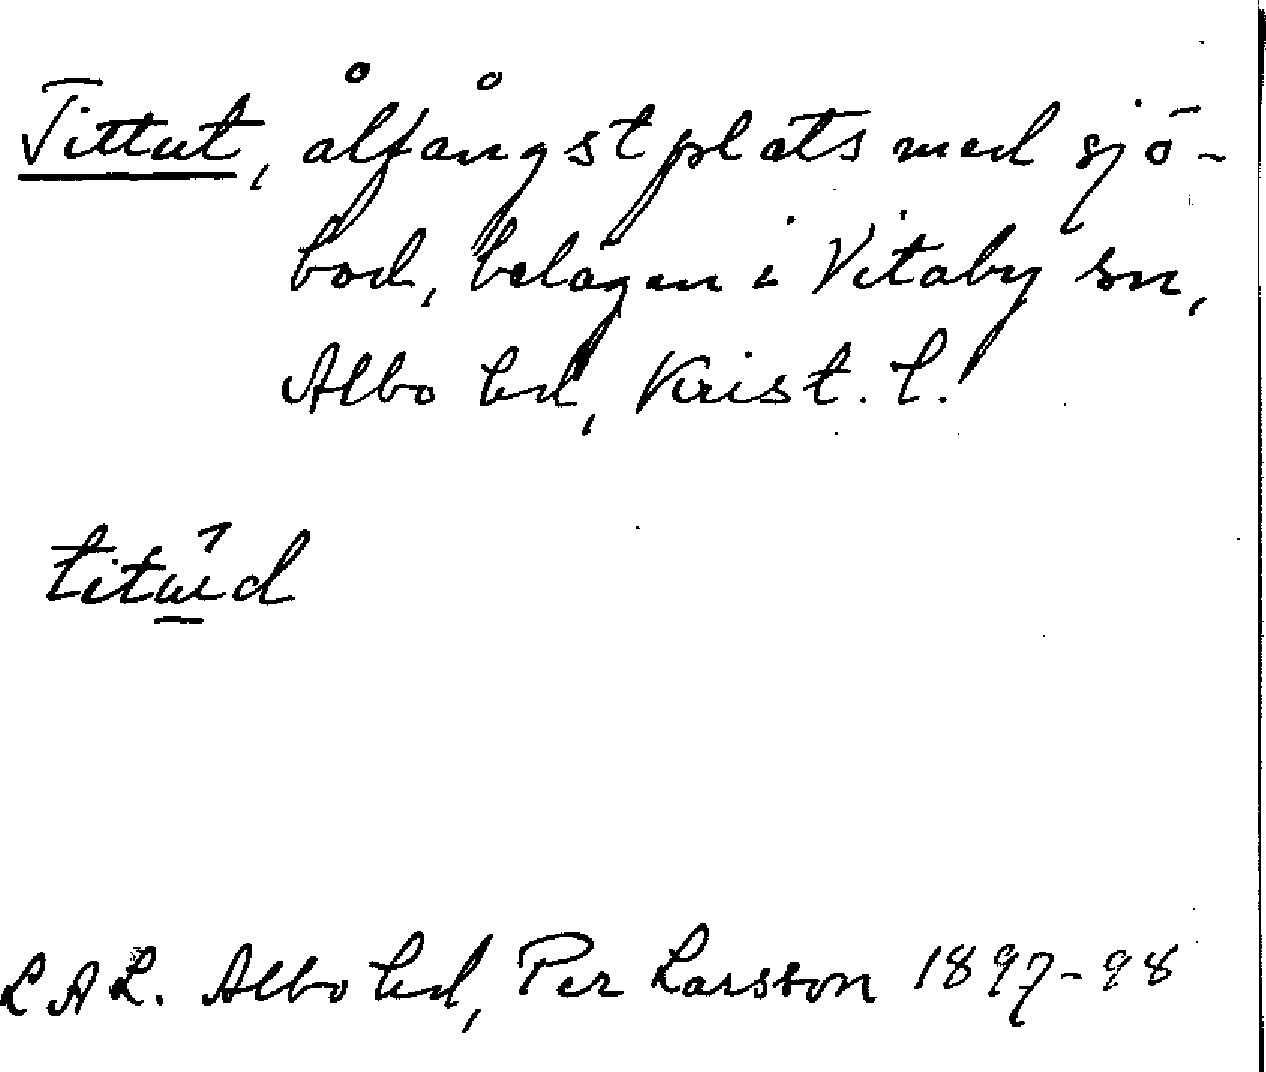 Tittut, ålfångstplats med sjö-
bod, belägen i Vitaby sn,
Albo hd, Krist. l.
titú̲d
LAL. Albo hd, Per Larsson 1897-98